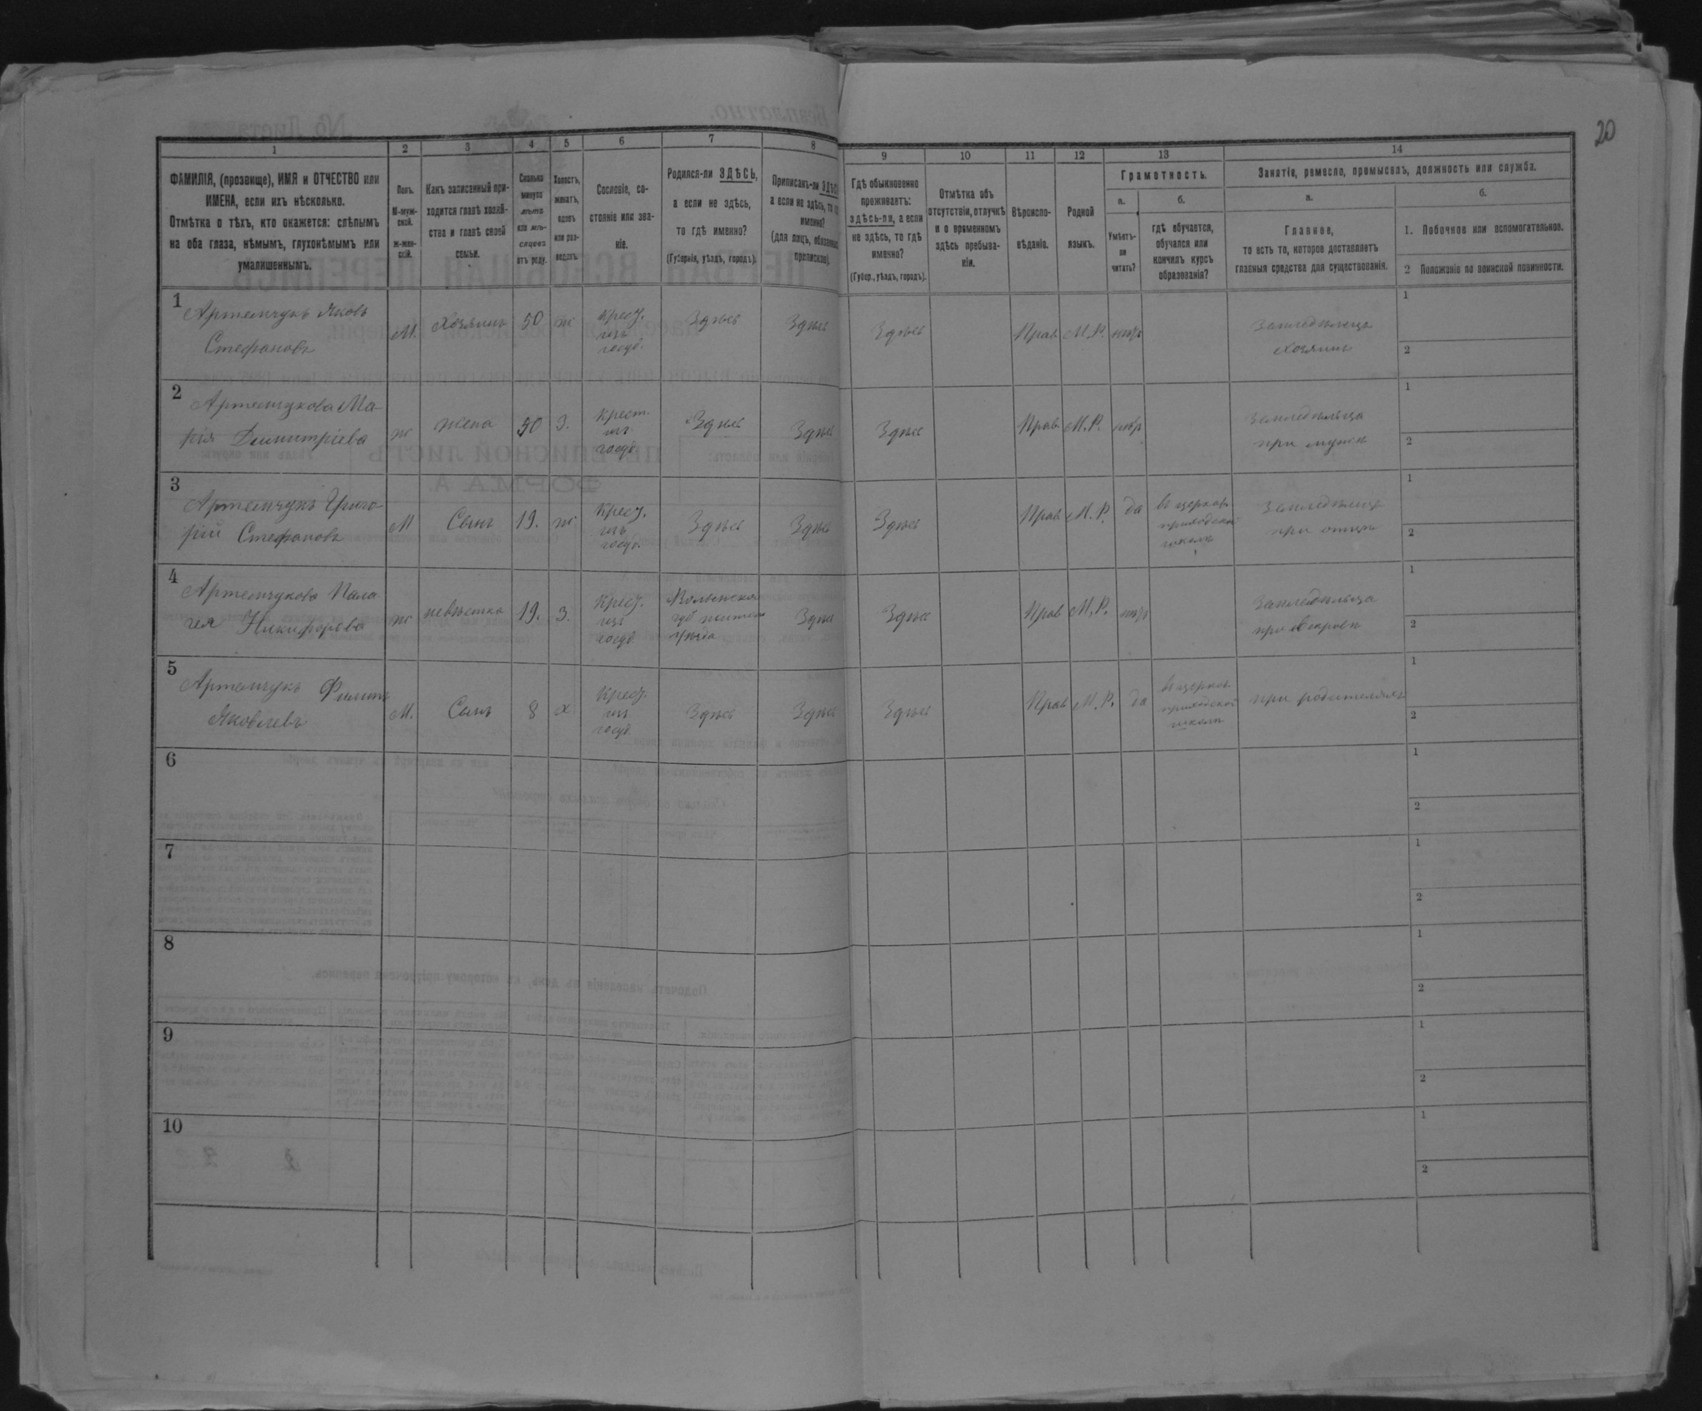 20
1 2 3 4 5 6 7 8 9 10 11 12 13 14
ФАМИЛІЯ, (прозвище), ИМЯ и ОТЧЕСТВО или
ИМЕНА, если ихъ нѣсколько.
Отмѣтка о тѣхъ, кто окажется: слѣпымъ
на оба глаза, нѣмымъ, глухонѣмымъ или
умалишеннымъ.
Полъ.
М-муж-
ской.
ж-жен-
скій.
Какъ записанный при-
ходится главѣ хозяй-
ства и главѣ своей
семьи.
Сколько
минуло
лѣтъ
или мѣ-
сяцевъ
отъ роду.
Холостъ,
женатъ,
вдовъ
или раз-
веденъ.
Сословіе, со-
стояніе или зва-
ніе.
Родился-ли ЗДѢСЬ,
а если не здѣсь,
то гдѣ именно?
(Губернія, уѣздъ, городъ).
Приписанъ-ли
а если не здѣсь, то
именно?
(для лицъ,
Гдѣ обыкновенно
проживаетъ:
здѣсь-ли, а если
не здѣсь, то гдѣ
именно?
(Губер., уѣздъ, городъ).
Отмѣтка объ
отсутствіи, отлучкѣ
и о временномъ
здѣсь пребыва-
ніи.
Вѣроиспо-
вѣданіе.
Родной
языкъ.
Грамотность.
а.
Умѣетъ-
ли
читать?
б.
гдѣ обучается,
обучался или
кончилъ курсъ
образованія?
Занятіе, ремесло, промыселъ, должность или служба.
а.
Главное,
то есть то, которое доставляетъ
главныя средства для существованія.
б.
1. Побочное или вспомогательное.
2 Положеніе по воинской повинности.
1
Артемчукъ Яковъ
Стефановъ
М. Хозяинъ 50 ж
крест.
изъ
госуд.
Здѣсь Здѣсь Здѣсь Прав М.Р. нѣтъ
Земледѣлецъ
хозяинъ
1
2
2
Артемчукова Ма-
рія Димитріева
ж жена 50 З.
крест.
изъ
госуд.
Здѣсь Здѣсь Здѣсь Прав М.Р. нѣтъ
Земледѣлица
при мужѣ
1
2
3
Артемчукъ Григо-
рій Стефановъ
М Сынъ 19. ж
крест.
изъ
госуд.
Здѣсь Здѣсь Здѣсь Прав М.Р. да
въ церков.
приходской
школѣ
Земледѣлецъ
при отцѣ
1
2
4
Артемчукова Пела
гея Никифорова
ж невѣстка 19. З.
крест.
изъ
госуд.
Волынская
губ
Здѣсь Здѣсь Прав М.Р. нѣтъ
Земледѣлица
при свекровѣ
1
2
5
Артемчукъ Филипъ
Яковлевъ
М. Сынъ 8 х
крест.
изъ
госуд.
Здѣсь Здѣсь Здѣсь Прав М.Р. да
въ церков.
приходской
школѣ
при родителяхъ
1
2
6
1
2
7
1
2
8
1
2
9
1
2
10
1
2